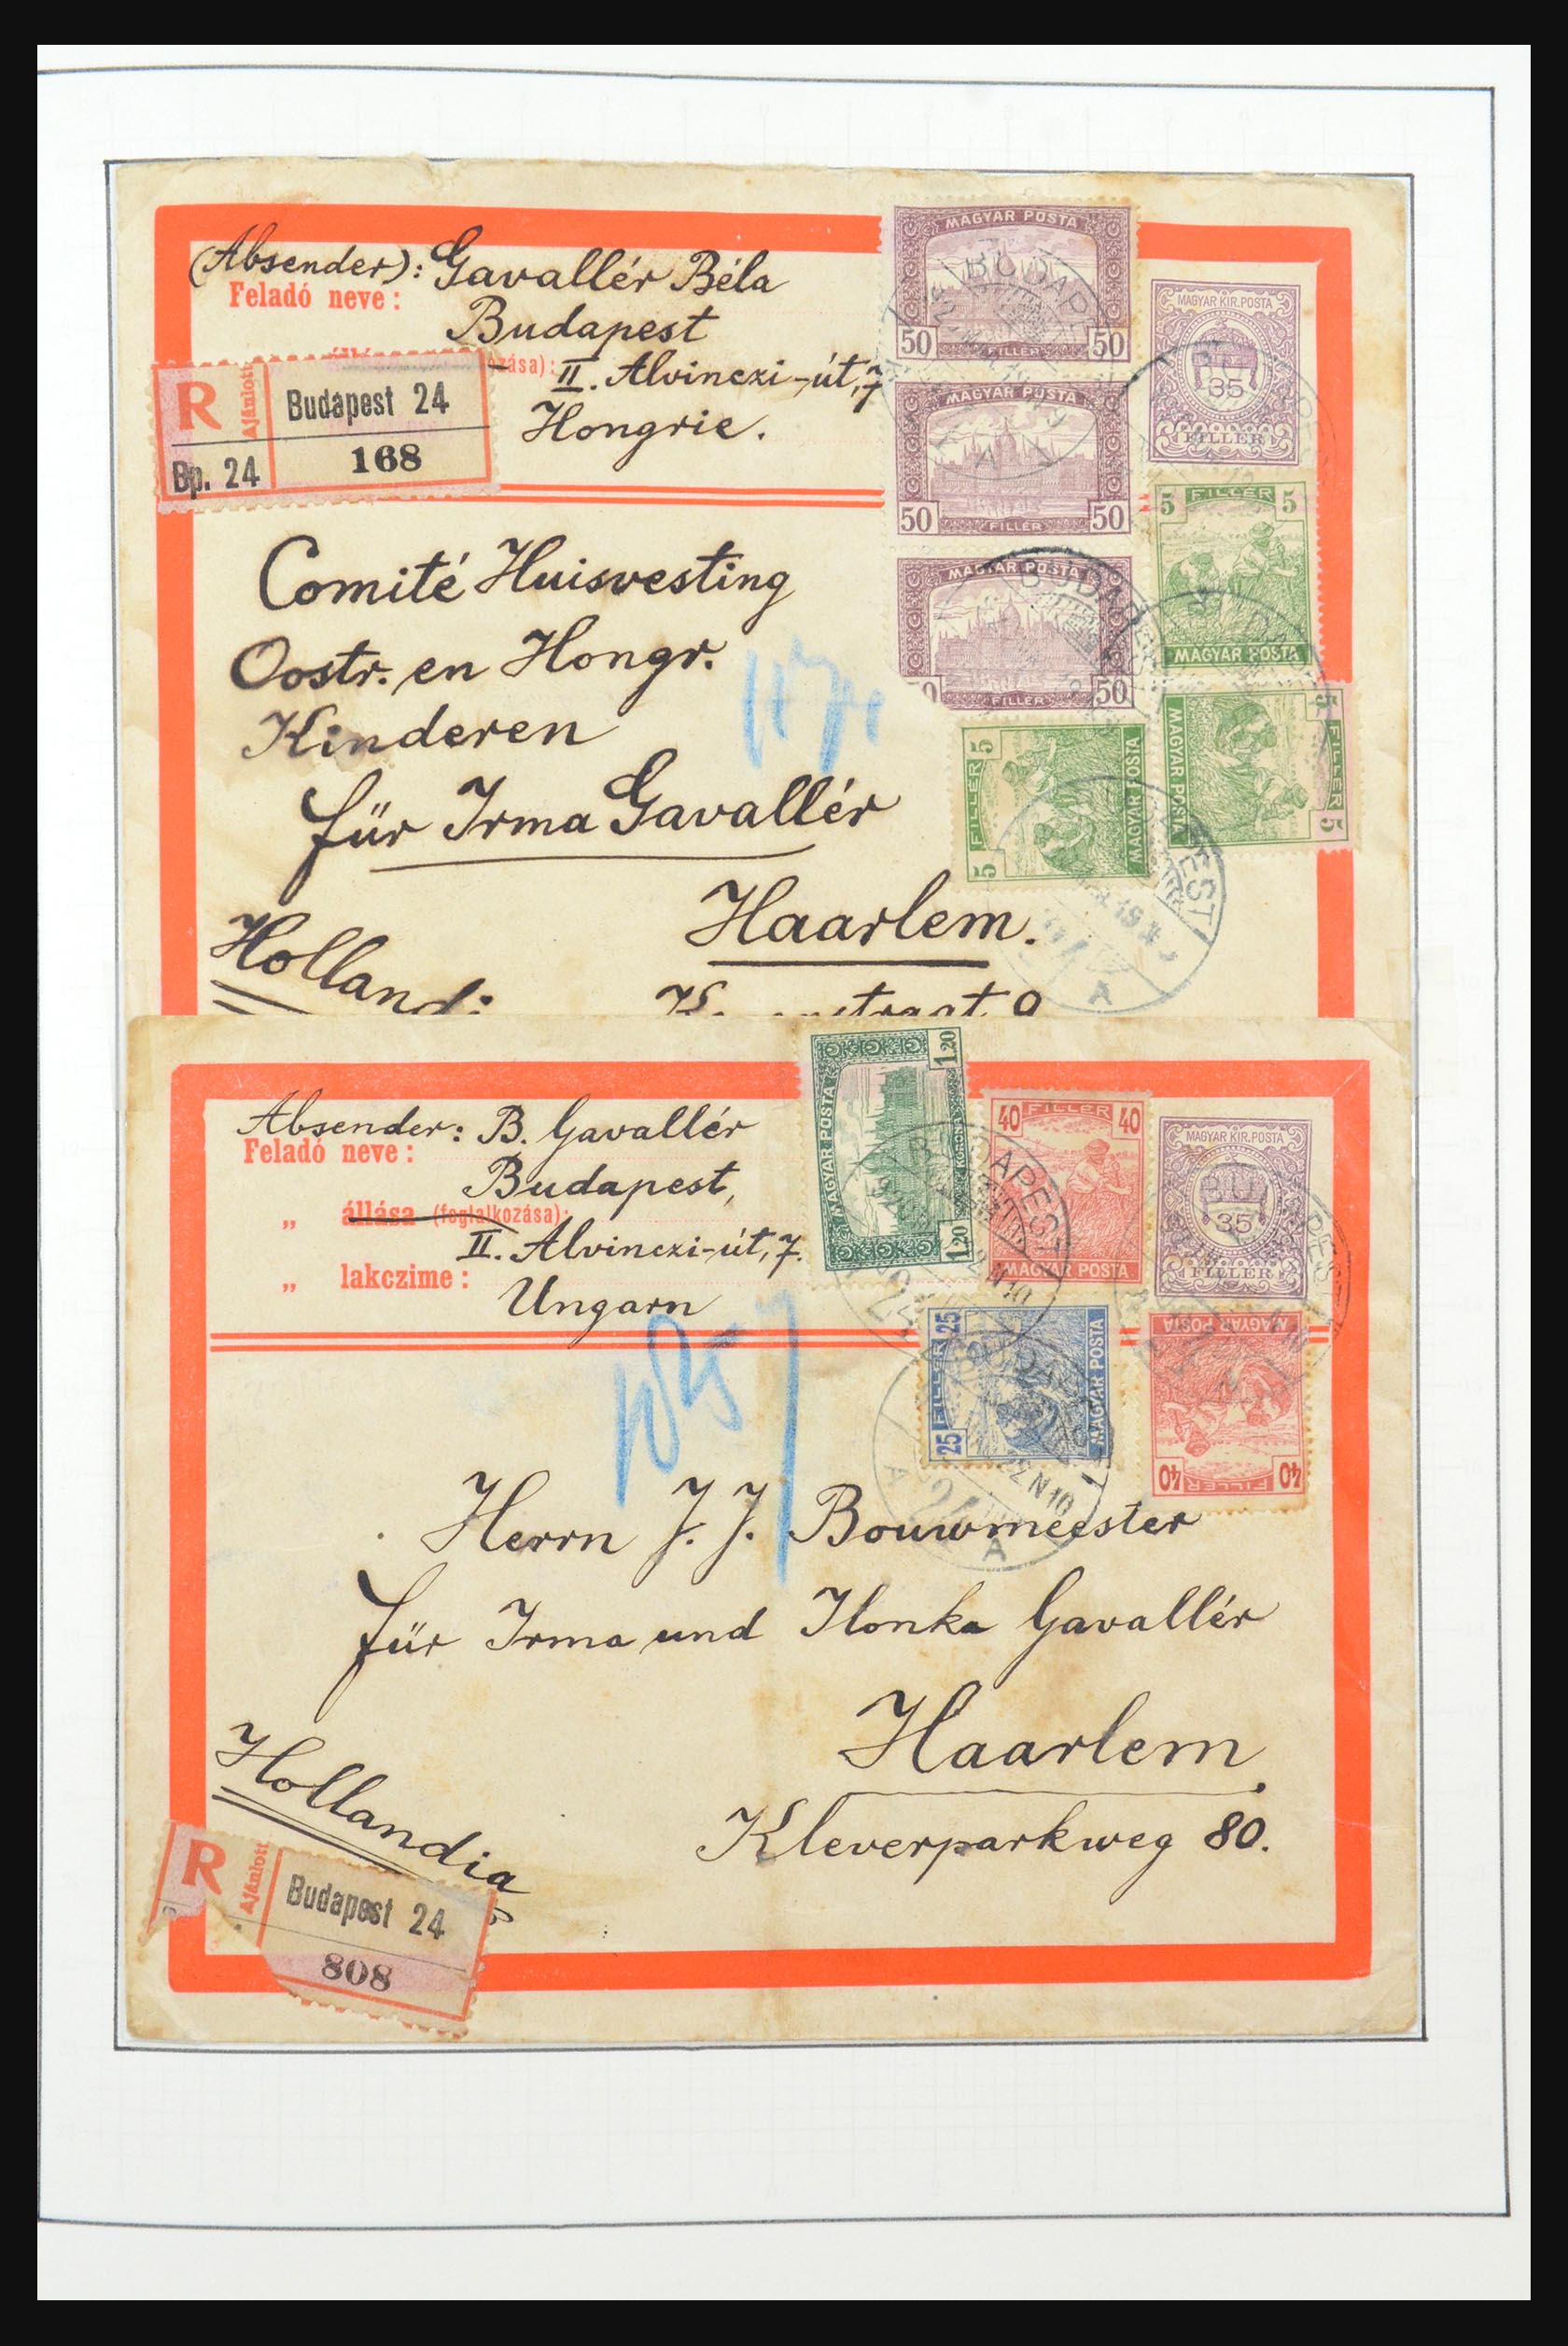 (Absender): Gavallér Béla
Feladó neve:
Budapest
II. Alvinczi-út, 7
Hongrie.
R Ajánlott Budapest 24
Bp. 24 168
MAGYAR POSTA
50 FILLÉR 50
MAGYAR POSTA
50 FILLÉR 50
MAGYAR POSTA
FILLÉR 50
MAGYAR KIR. POSTA
35
FILLÉR
5 FILLÉR 5
MAGYAR POSTA
5 FILLÉR 5
MAGYAR POSTA
5 FILLÉR 5
MAGYAR POSTA
Comité Huisvesting
Oostr. en Hongr.
Kinderen
für Irma Gavallér
Haarlem.
Holland
A
Absender: B. Gavallér
Feladó neve:
Budapest,
„ állása (foglalkozása):
II. Alvinczi-út, 7.
„ lakczime:
Ungarn
MAGYAR POSTA
1.20 KORONA 1.20
40 FILLÉR 40
MAGYAR POSTA
MAGYAR KIR. POSTA
35
FILLÉR
25 FILLÉR 25
MAGYAR POSTA
40 FILLÉR 40
MAGYAR POSTA
BUDAPEST
A
Herrn J. J. Bouwmeester
für Irma und Ilonka Gavallér
Haarlem,
Kleverparkweg 80.
Hollandia
R Ajánlott Budapest 24
808